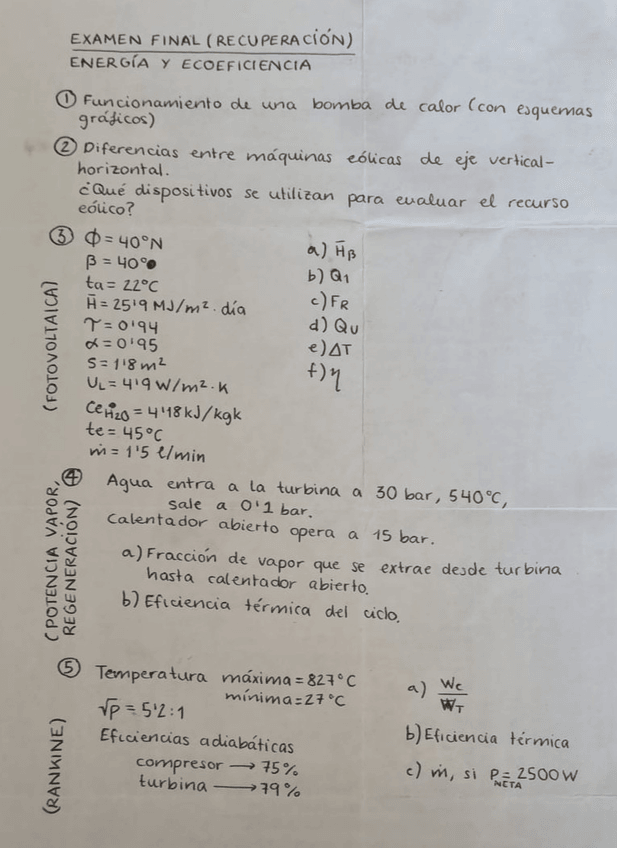 EXAMEN FINAL (RECUPERACIÓN)
ENERGÍA Y ECOEFICIENCIA
① Funcionamiento de una bomba de calor (con esquemas
gráficos)
② Diferencias entre máquinas eólicas de eje vertical-
horizontal.
¿Qué dispositivos se utilizan para evaluar el recurso
eólico?
(FOTOVOLTAICA)
③ Φ = 40°N
β = 40°
ta = 22°C
H̄ = 25'9 MJ/m². día
τ = 0'94
α = 0'95
S = 1'8 m²
UL = 4'9 W/m². K
Ce H2O = 4'18 kJ/kgk
te = 45°C
ṁ = 1'5 l/min
a) H̄β
b) Q1
c) FR
d) QU
e) ΔT
f) η
(POTENCIA VAPOR,
REGENERACIÓN)
④ Agua entra a la turbina a 30 bar, 540°C,
sale a 0'1 bar.
Calentador abierto opera a 15 bar.
a) Fracción de vapor que se extrae desde turbina
hasta calentador abierto.
b) Eficiencia térmica del ciclo.
(RANKINE)
⑤ Temperatura máxima = 827°C
mínima = 27°C
√P = 5'2:1
Eficiencias adiabáticas
compresor → 75%
turbina → 79%
a) Wc/WT
b) Eficiencia térmica
c) ṁ, si P NETA = 2500 W